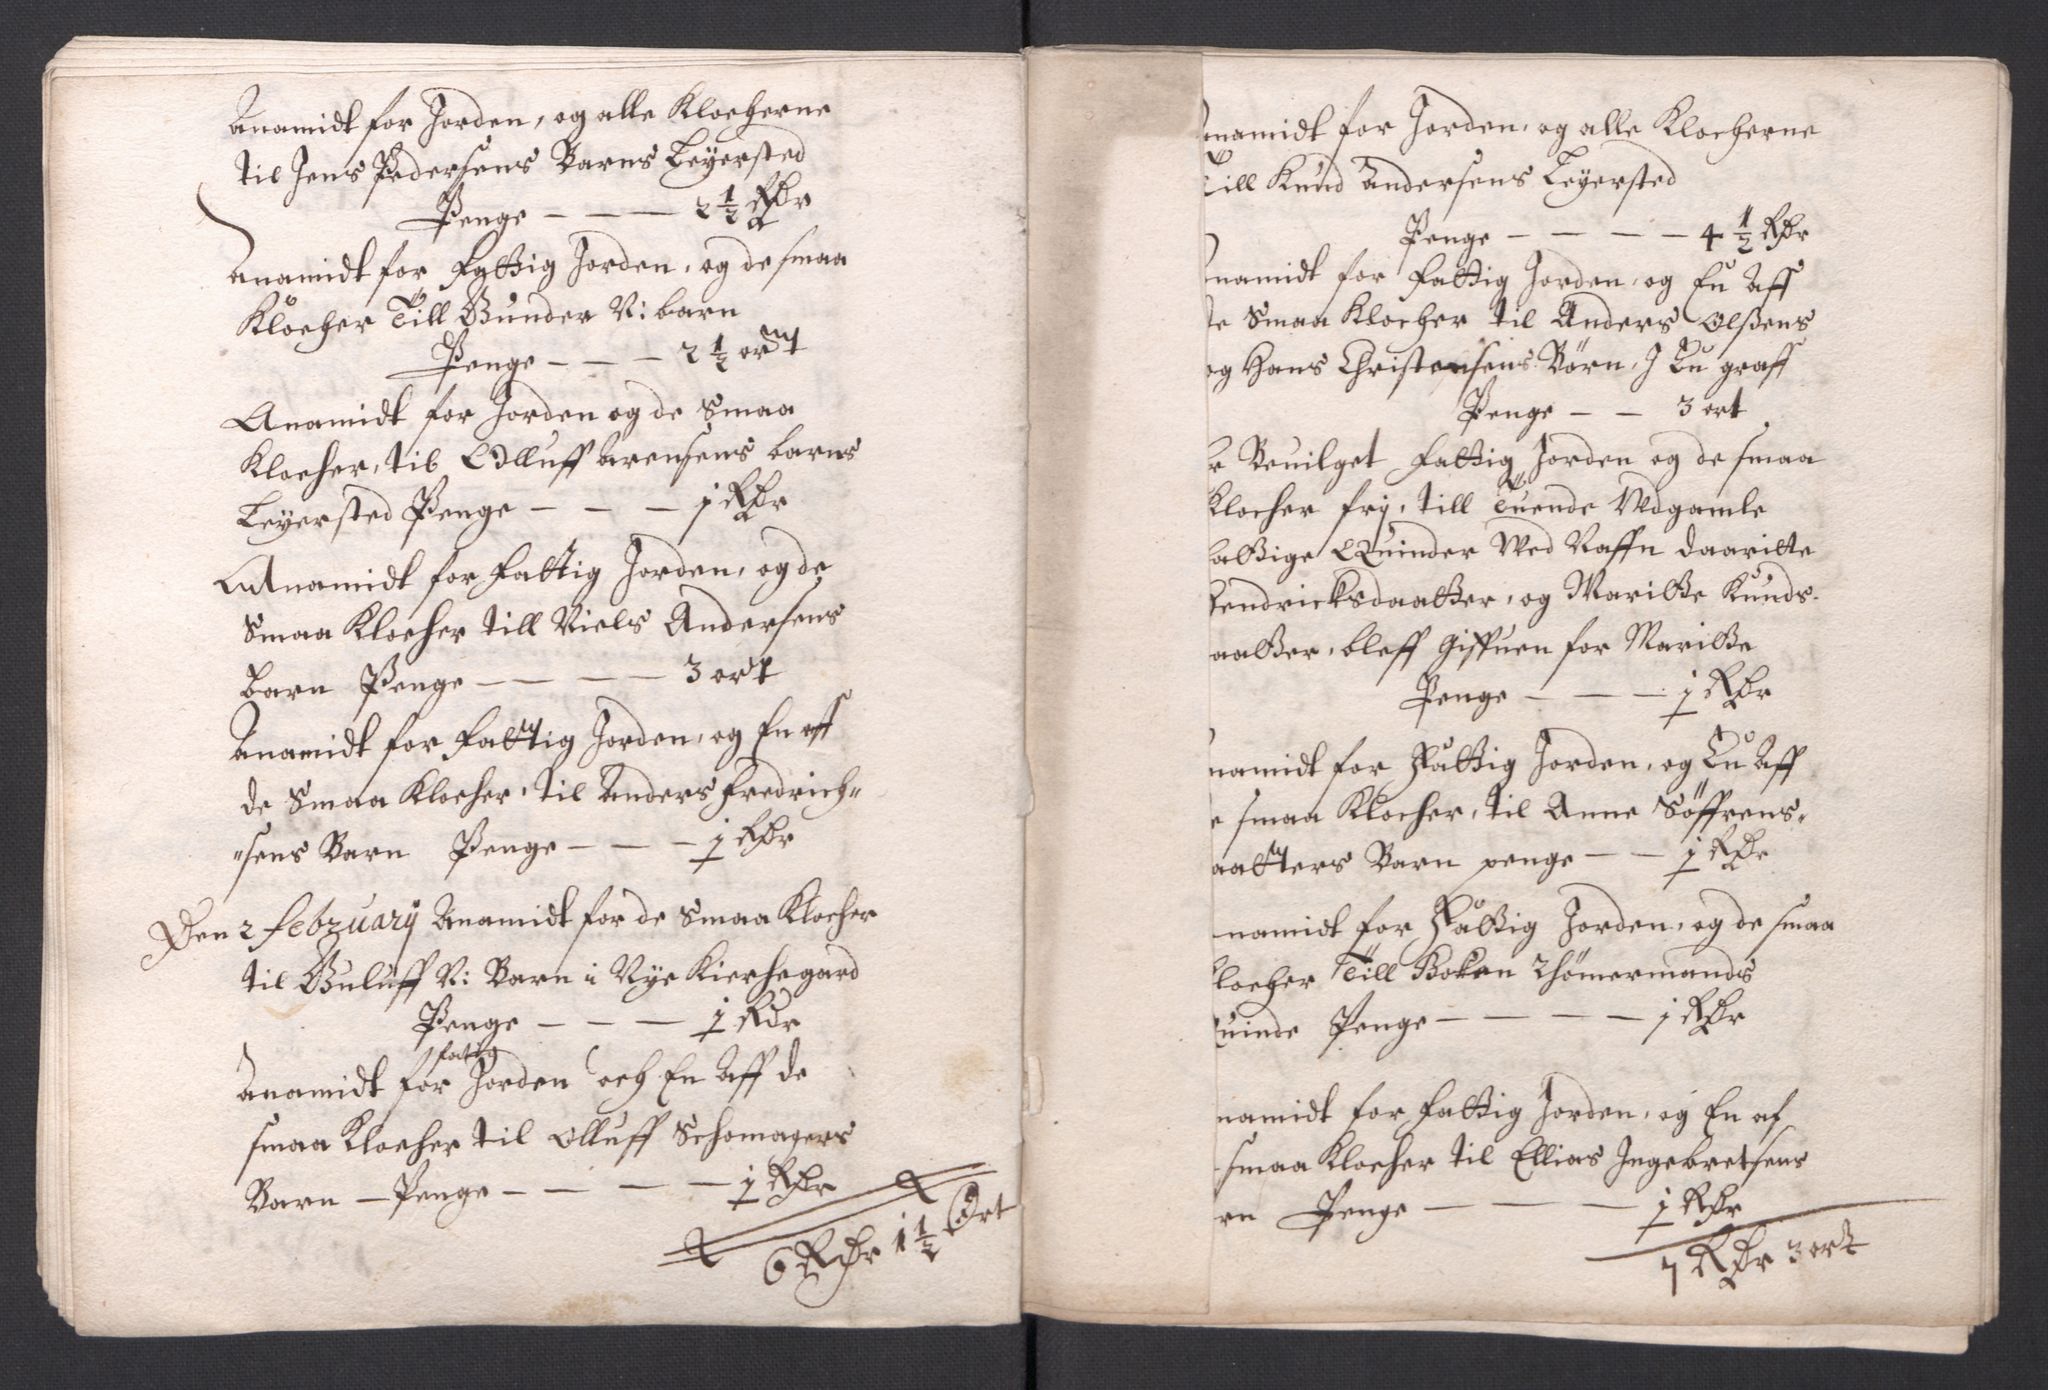 Anamidt for Jorden, og alle Klocherne
til Jens Pedersens Barns Leyersted
Penge - - - 2 1/2 RDr
Anamidt for Fattig Jorden, og de smaa
Klocher Till Gunder N: barn
Penge - - - 2 1/2 ort
Anamidt for Jorden og de Smaa
Klocher, til Olluff Arensens barns
Leyersted Penge - - - 1 RDr
Anamidt for Fattig Jorden, og de
Smaa Klocher till Niels Andersens
barn Penge - - - - 3 ort
Anamidt for Fattig Jorden, og En aff
de Smaa Klocher, til Anders Fredrich=
=sens Barn Penge - - - 1/2 RDr
Den 2 February Anamidt for de Smaa Klocher
til Guluff N: Barn i Nye Kierchegard
Penge - - - 1/2 RDr
fattig
Anamidt for Jorden och En Aff de
smaa Klocher til Olluff Schomagers
Barn - Penge - - - - 1/2 RDr
6 RDr 1 1/2 Ort
namidt for Jorden, og alle Klocherne
Till Knud Andersens Leyersted
Penge - - - - 4 1/2 RDr
namidt for Fattig Jorden, og En Aff
de Smaa Klocher til Anders Olßens
og Hans Christensens Börn, J En graff
Penge - - 3 ort
er Beuilget Fattig Jorden og de smaa
Klocher frÿ, till Tuende Udgamle
fattige Quinder Wed Naffn Daaritte
Hendricksdaatter, og Maritte Knuds-
aatter, bleff Giffuen for Maritte
Penge - - - 1/2 RDr
namidt for Fattig Jorden, og En Aff
e smaa Klocher, til Anne Söffrens=
aatters Barn penge - - 1/2 RDr
namidt for Fattig Jorden, og de smaa
locher Till Boken Thömermands
Quinde Penge - - - - 1 RDr
namidt for Fattig Jorden, og En af
smaa Klocher til Ellias Ingebretsens
rn Penge - - - 1/2 RDr
7 RDr 3 ort